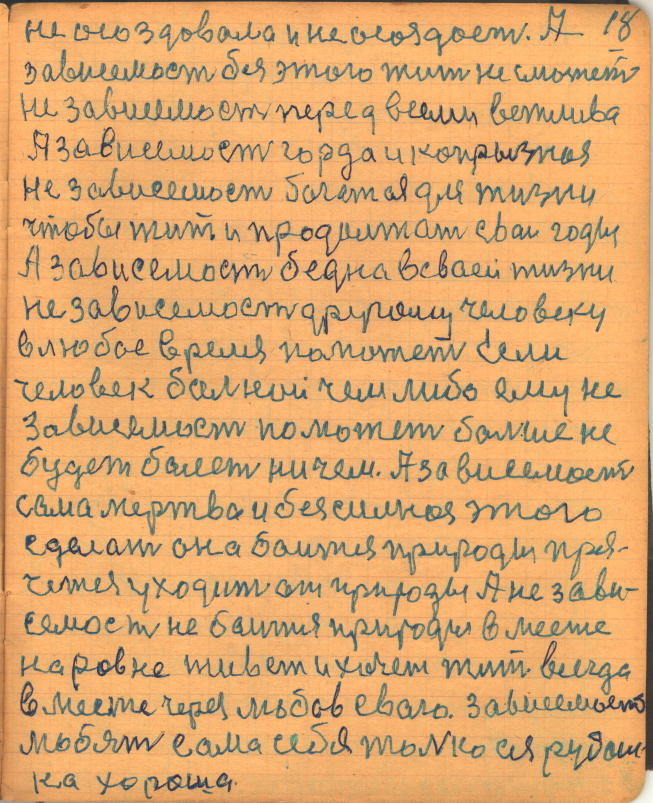 не оюздовала и не оюздает. А 18
зависемост без этого жит не сможет
не зависемост перед всеми вежлива
А зависемост горда и копрызная
не зависемост богатая для жизни
чтобы жит и продолжат сваи годы
А зависемост бедна в сваей жизни
не зависемост другому человеку
в любое время поможет Если
человек балной чем либо ему не
зависемост поможет балше не
будет балет ни чем. А зависемост
сама мертва и безсилная этого
сделат она боится природы пря-
чется уходит от природы А не зави-
семост не боится природы вместе
наровне живет и хочет жит всегда
вместе через любов сваю. Зависемост
любят сама себя толко ся рубаш-
ка хороша.